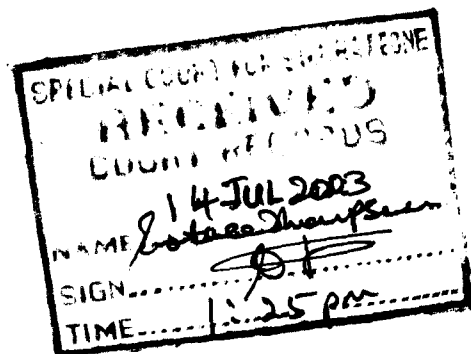 SPECIAL COURT FOR SIERRA LEONE
RECEIVED
COURT RECORDS
14 JUL 2003
NAME Thompson
SIGN
TIME 1:25 pm